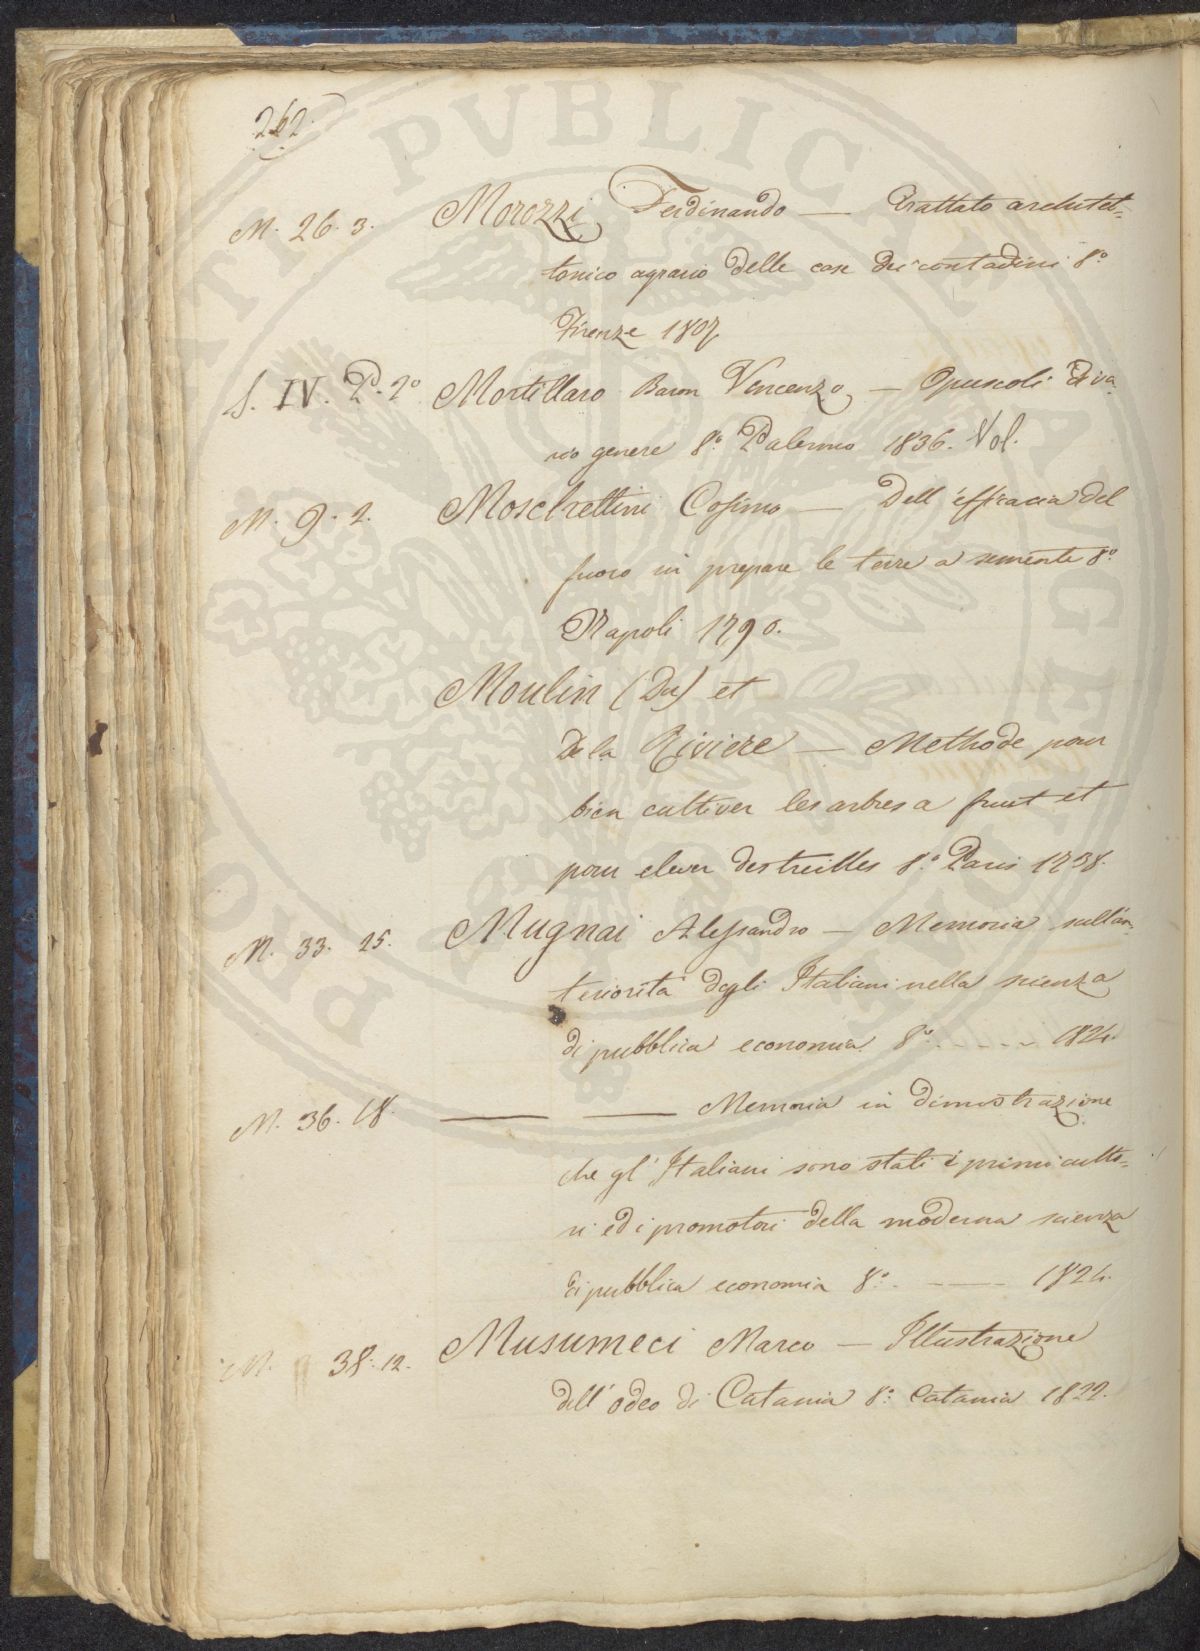 262.
M. 26. 3. Morozzi Ferdinando — Trattato architet-
tonico agrario delle case dei contadini 8.°
Firenze 1807
S. IV. P. 2° Mortillaro Baron Vincenzo — Opuscoli di va-
rio genere 8.° Palermo 1836. Vol.
M. 9. 2. Moschettini Cosimo — Dell'efficacia del
fuoco in prepare le terre a semente 8.°
Napoli 1790.
Moulin (Du) et
De la Riviere — Methode pour
bien cultiver les arbres a fruit et
pour elever des treilles 8.° Paris 1738.
M. 33. 25. Mugnai Alessandro — Memoria sull'an-
teriorita degli Italiani nella scienza
di pubblica economia 8.° - - - - 1824.
M. 36. 18. — — Memoria in dimostrazione
che gl'Italiani sono stati i primi culto-
ri ed i promotori della moderna scienza
di pubblica economia 8.° - — 1824.
M. 38. 12. Musumeci Marco — Illustrazione
dell'odeo di Catania 8.° Catania 1822.
PROPRIETATI PVBLICAE AVGENDAE